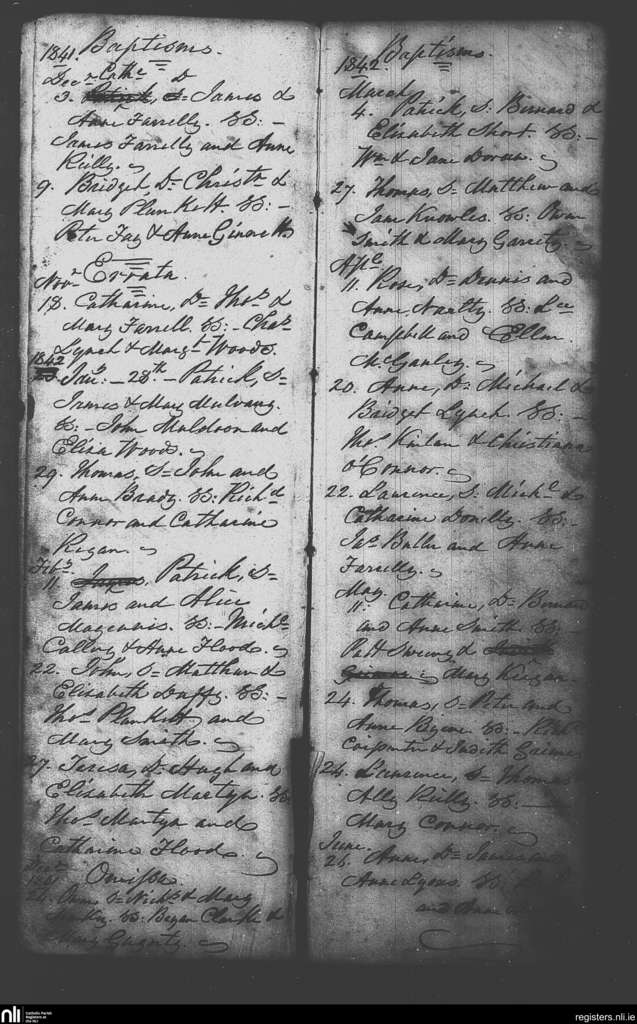 1841. Baptisms.
Decr Cathe D
3. Patrick, S= James &
Anne Farrelly. SS: -
James Farrelly and Anne
Reilly.
9. Bridget, D= Christn &
Mary Plunkett. SS: -
Peter Fay & Anne
Errata.
Novr
18. Catharine, D= Thos &
Mary Farrell. SS: - Chas
Lynch & Margt Woods.
1842
Jany - 28th - Patrick, S=
James & Mary Mulvany.
SS: - John Muldoon and
Eliza Woods.
29. Thomas, S= John and
Anne Brady. SS: Richd
Connor and Catharine
Regan.
Feby
11. James, Patrick, S=
James and Alice
Magennis. SS: - Michl
& Anne Flood.
22. John, S= Matthew &
Elisabeth Duffy. SS: -
Thos Plunkett and
Mary Smith.
27. Teresa, D= Hugh and
Elisabeth Martyn. SS
Thos Martyn and
Catharine Flood.
Omissa.
1841
24. Owen S= Nichs & Mary
SS: Bryan Clarke &
Mary
1842 Baptisms.
March
4. Patrick, S: Bernard &
Elisabeth Short. SS: -
Wm & Jane Doran.
27. Thomas, S= Matthew and
Jane Knowles. SS: Owen
Smith & Mary Garrety.
Aple
11. Rose, D= Dennis and
Anne Nantty. SS: Lce
Campbell and Ellen
McGanley.
20. Anne, D= Michael &
Bridget Lynch. SS: -
Thos & Christiana
O'Connor.
22. Laurence, S: Michl &
Catharine Donelly. SS: -
Jas Butler and Anne
Farrelly.
May.
11. Catharine, D= Bernard
and Anne Smith. SS: -
Patt Sweeny &
Mary Keegan.
24. Thomas, S= Peter and
Anne Byrne. SS: -
Carpenter & Judith
24. Laurence, S= Thomas
Ally Reilly. SS: -
Mary Connor.
June.
26. Anne, D= James and
Anne Lyons. SS:
and Anne
nli
Catholic Parish
Registers at
the NLI
registers.nli.ie